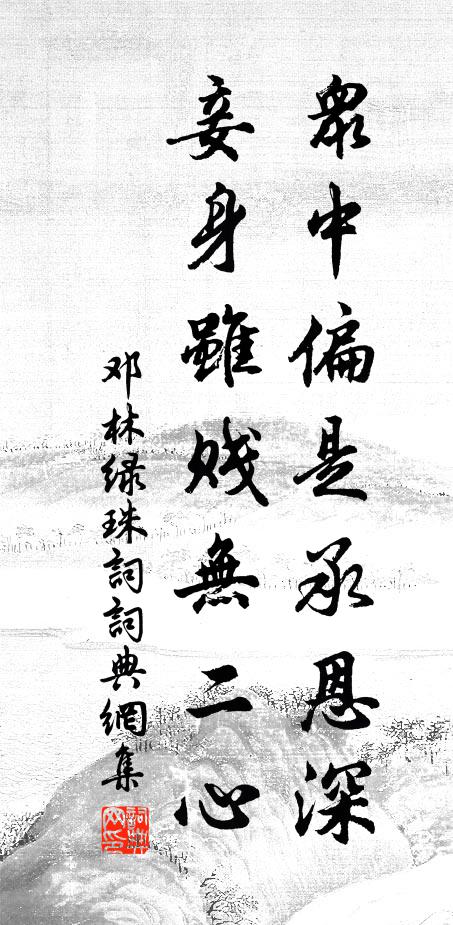 眾中偏是承恩深
妾身雖賤無二心
邓林绿珠詞詞典網集